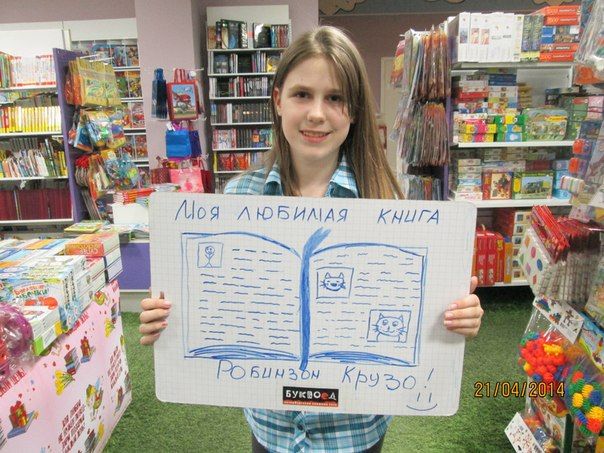 Моя любимая книга
Робинзон Крузо!
БУКВОЕД
21/04/2014